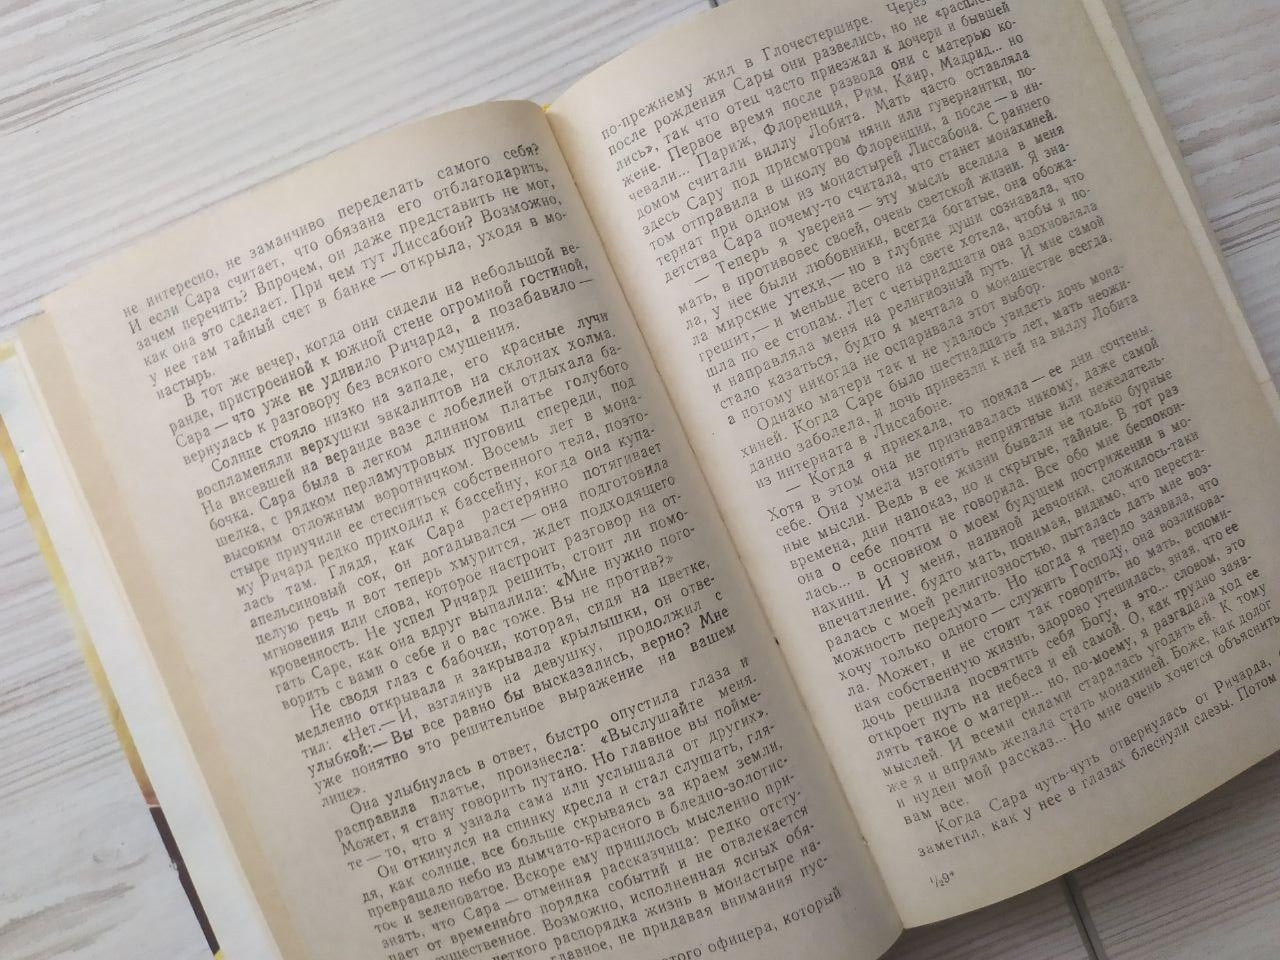 не интересно, не заманчиво переделать самого себя?
И если Сара считает, что обязана его отблагодарить,
зачем перечить? Впрочем, он даже представить не мог,
как она это сделает. При чем тут Лиссабон? Возможно,
у нее там тайный счет в банке — открыла, уходя в мо-
настырь.
В тот же вечер, когда они сидели на небольшой ве-
ранде, пристроенной к южной стене огромной гостиной,
Сара — что уже не удивило Ричарда, а позабавило —
вернулась к разговору без всякого смущения.
Солнце стояло низко на западе, его красные лучи
воспламеняли верхушки эвкалиптов на склонах холма.
На висевшей на веранде вазе с лобелией отдыхала ба-
бочка. Сара была в легком длинном платье голубого
шелка, с рядком перламутровых пуговиц спереди, под
высоким отложным воротничком. Восемь лет в мона-
стыре приучили ее стесняться собственного тела, поэто-
му Ричард редко приходил к бассейну, когда она купа-
лась там. Глядя, как Сара растерянно потягивает
апельсиновый сок, он догадывался — она подготовила
целую речь и вот теперь хмурится, ждет подходящего
мгновения или слова, которое настроит разговор на от-
кровенность. Не успел Ричард решить, стоит ли помо-
гать Саре, как она вдруг выпалила: «Мне нужно пого-
ворить с вами о себе и о вас тоже. Вы не против?»
Не сводя глаз с бабочки, которая, сидя на цветке,
медленно открывала и закрывала крылышки, он отве-
тил: «Нет.— И, взглянув на девушку, продолжил с
улыбкой:— Вы все равно бы высказались, верно? Мне
уже понятно это решительное выражение на вашем
лице».
Она улыбнулась в ответ, быстро опустила глаза и
расправила платье, произнесла: «Выслушайте меня.
Может, я стану говорить путано. Но главное вы пойме-
те — то, что я узнала сама или услышала от других».
Он откинулся на спинку кресла и стал слушать, гля-
дя, как солнце, все больше скрываясь за краем земли,
превращало небо из дымчато-красного в бледно-золотис-
тое и зеленоватое. Вскоре ему пришлось мысленно при-
знать, что Сара — отменная рассказчица: редко отсту-
пает от временно́го порядка событий и не отвлекается
существенное. Возможно, исполненная ясных обя-
четкого распорядка жизнь в монастыре на-
главное, не придавая внимания пус-
того офицера, который
по-прежнему жил в Глочестершире. Через
после рождения Сары они развелись, но не «распле-
лись», так что отец часто приезжал к дочери и бывшей
жене. Первое время после развода они с матерью ко-
чевали... Париж, Флоренция, Рим, Каир, Мадрид... но
домом считали виллу Лобита. Мать часто оставляла
здесь Сару под присмотром няни или гувернантки, по-
том отправила в школу во Флоренции, а после — в ин-
тернат при одном из монастырей Лиссабона. С раннего
детства Сара почему-то считала, что станет монахиней.
— Теперь я уверена — эту мысль вселила в меня
мать, в противовес своей, очень светской жизни. Я зна-
ла, у нее были любовники, всегда богатые, она обожа-
ла мирские утехи,— но в глубине души сознавала, что
грешит,— и меньше всего на свете хотела, чтобы я по-
шла по ее стопам. Лет с четырнадцати она вдохновляла
и направляла меня на религиозный путь. И мне самой
стало казаться, будто я мечтала о монашестве всегда,
а потому никогда не оспаривала этот выбор.
Однако матери так и не удалось увидеть дочь мона-
хиней. Когда Саре было шестнадцать лет, мать неожи-
данно заболела, и дочь привезли к ней на виллу Лобита
из интерната в Лиссабоне.
— Когда я приехала, то поняла — ее дни сочтены.
Хотя в этом она не признавалась никому, даже самой
себе. Она умела изгонять неприятные или нежелатель-
ные мысли. Ведь в ее жизни бывали не только бурные
времена, дни напоказ, но и скрытые, тайные. В тот раз
она о себе почти не говорила. Все обо мне беспокои-
лась... в основном о моем будущем пострижении в мо-
нахини. И у меня, наивной девчонки, сложилось-таки
впечатление, будто мать, понимая, видимо, что переста-
ралась с моей религиозностью, пыталась дать мне воз-
можность передумать. Но когда я твердо заявила, что
хочу только одного — служить Господу, она возликова-
ла. Может, и не стоит так говорить, но мать, вспоми-
ная собственную жизнь, здорово утешилась, зная, что ее
дочь решила посвятить себя Богу, и это... словом, это
откроет путь на небеса и ей самой. О, как трудно заяв-
лять такое о матери... но, по-моему, я разгадала ход ее
мыслей. И всеми силами старалась угодить ей. К тому
же я и впрямь желала стать монахиней. Боже, как долог
и нуден мой рассказ... Но мне очень хочется объяснить
вам все.
Когда Сара чуть-чуть отвернулась от Ричарда,
заметил, как у нее в глазах блеснули слезы. Потом
½9*